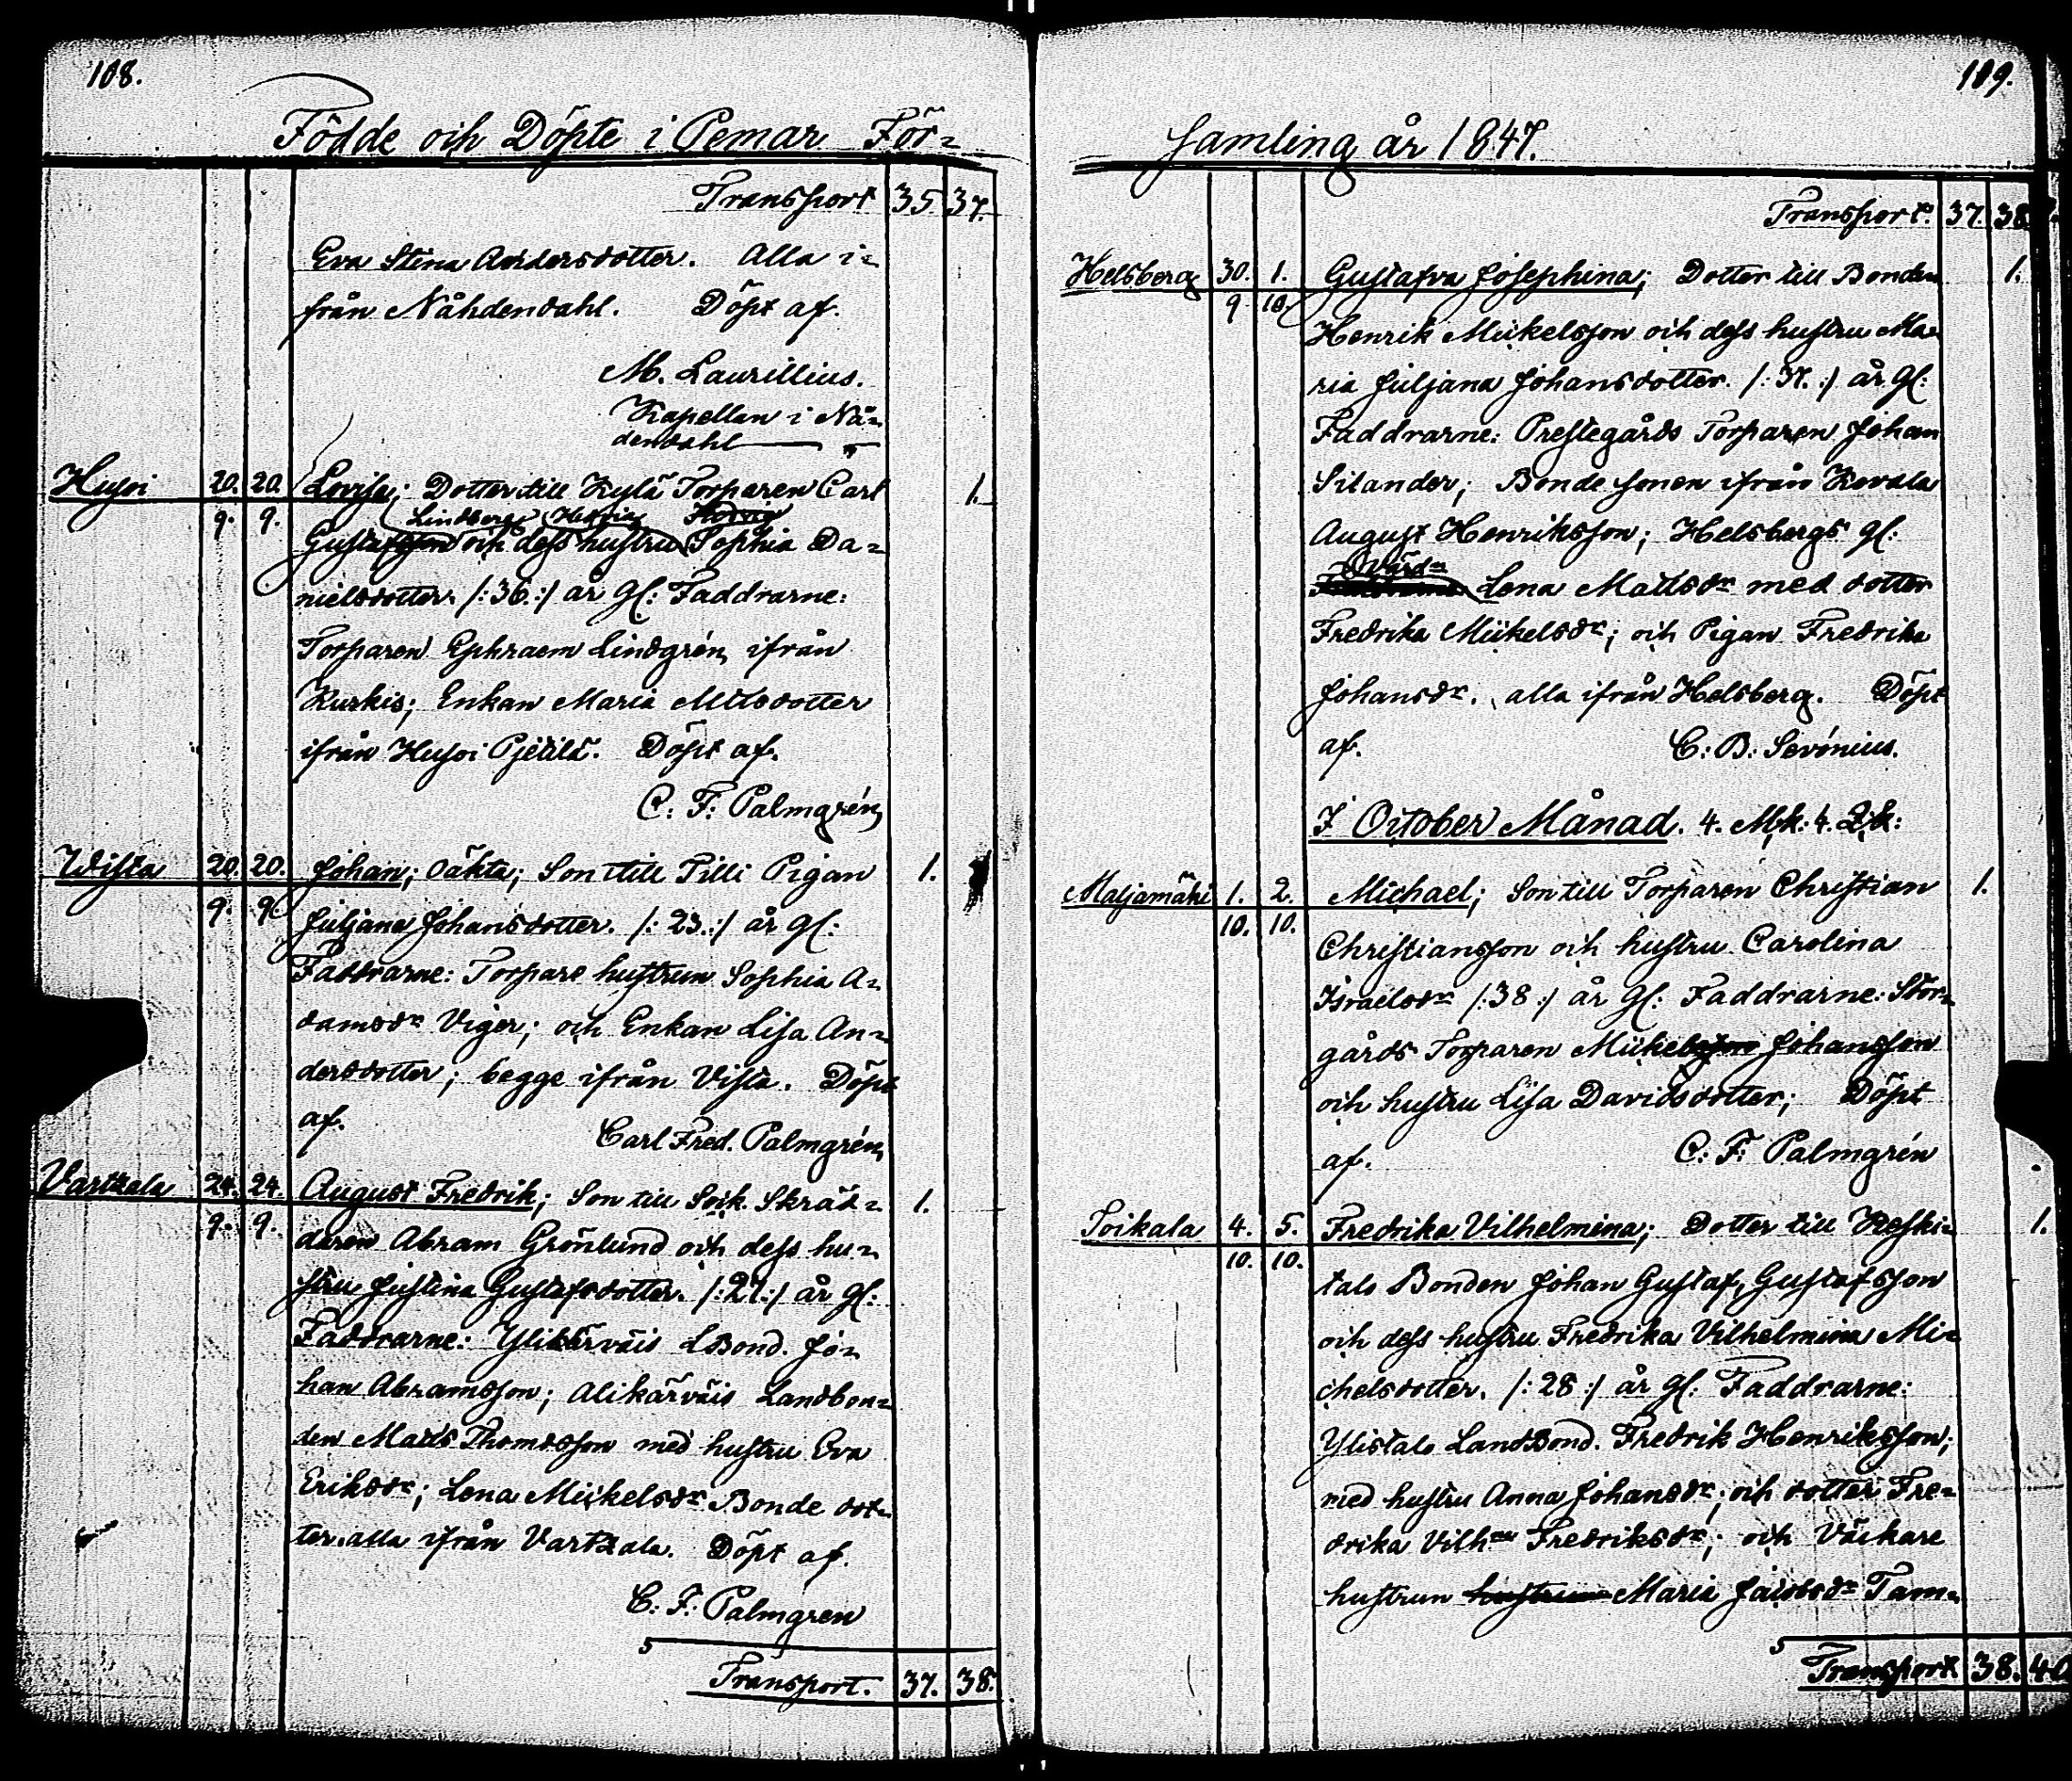 108.
Födde och Döpte i Pemar För=
Transport 35. 37.
Eva Stina Andersdotter. Alla i=
från Nåhdendahl. Döpt af.
M. Laurillius.
Kapellan i Nå=
dendahl
Hujoi 20. 20. Lovisa; Dotter till Kylä Torparen Carl 1.
9. 9. Lindberg Hedvig
Gustafsson och dess hustru Sophia Da=
nielsdotter. /: 36. :/ år gl: Faddrarne:
Torparen Ephraem Lindgrén ifrån
Kurkis; Enkan Maria Mttsdotter
ifrån Hujoi Pjetilä. Döpt af.
C: F: Palmgrén
Wista 20. 20. Johan; oäkta; Son till Tilli Pigan 1.
9. 9. Juljana Johansdotter. /: 23. :/ år gl:
Faddrarne: Torpare hustrun Sophia A=
damsdr Viger; och Enkan Lisa An=
dersdotter; begge ifrån Vista. Döpt
af. Carl Fred. Palmgrén
Vartzala 24. 24. August Fredrik; Son till Sock. Skräd= 1.
9. 9. daren Abram Grönlund och dess hu=
stru Justina Gustafsdotter. /: 27. :/ år gl:
Faddrarne: Ylikärväis LBond. Jo=
han Abramsson; Alikärväis Landbon=
den Matts Thomasson med hustru Eva
Eriksdr; Lena Mickelsdr Bonde dot=
ter. alla ifrån Vartzala. Döpt af.
C: F: Palmgren
5
Transport. 37. 38.
109.
Samling år 1847.
Transport. 37. 38.
Helsberg 30. 1. Gustafva Josephina; Dotter till Bonden 1.
9 10 Henrik Mickelsson och dess hustru Ma=
ria Juljana Johansdotter. /: 37. :/ år gl:
Faddrarne: Prestegårds Torparen Johan
Silander; Bonde sonen ifrån Kevala
August Henriksson; Helsbergs gl:
Värdn
Lena Mattsdr med dotter
Fredrika Mickelsdr; och Pigan Fredrika
Johansdr. alla ifrån Helsberg. Döpt
af. C: B: Severénius.
I October Månad. 4. M,k: 4. Q,k:
Maljamäki 1. 2. Michael; Son till Torparen Christian 1.
10. 10. Christiansson och hustru Carolina
Israelsdr /: 38 :/ år gl: Faddrarne: Stor=
gårds Torparen Mickel Johansson
och hustru Lisa Davidsdotter; Döpt
af. C: F: Palmgrén
Toikala 4. 5. Fredrika Vilhelmina; Dotter till Keski= 1.
10. 10. talo Bonden Johan Gustaf, Gustafsson
och dess hustru Fredrika Vilhelmina Mi=
chelsdotter. /: 28 :/ år gl: Faddrarne:
Ylistalo LandBond. Fredrik Henriksson;
med hustru Anna Johansdr; och dotter Fre=
drika Vilhna Fredriksdr; och Väckare
hustrun hustrun Maria Jacobsdr Tam=
5
Transport 38. 40